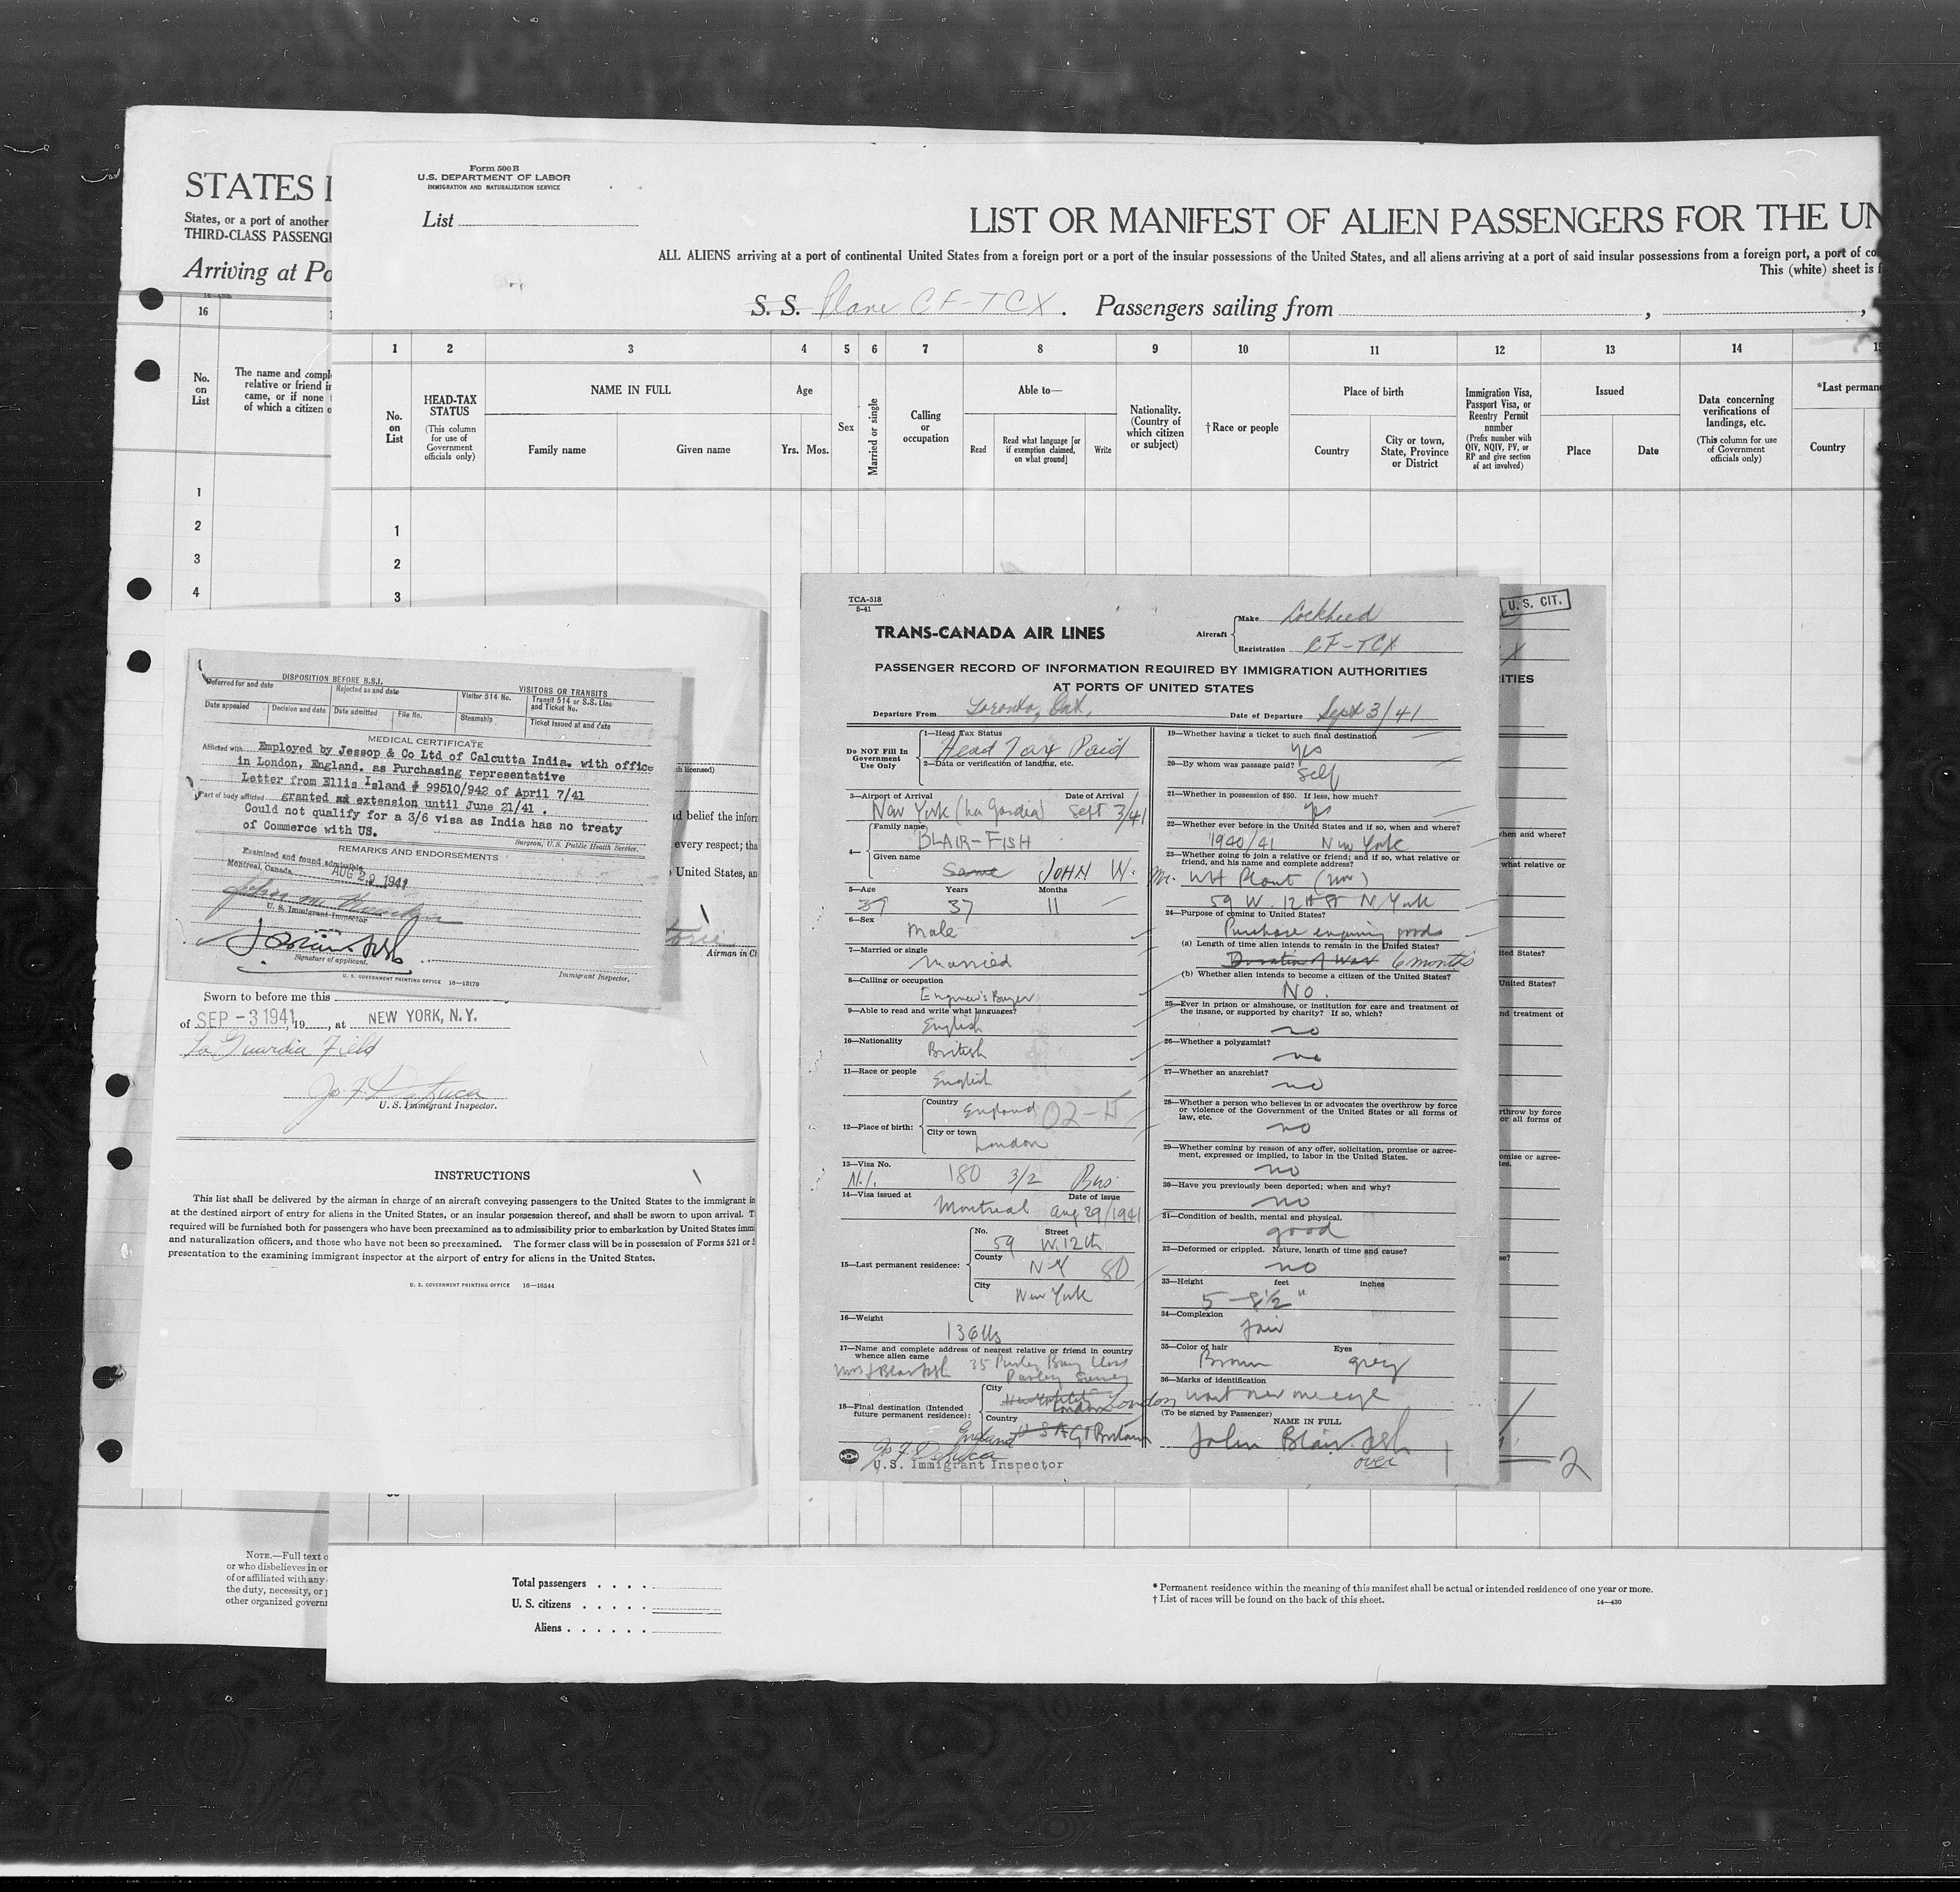 STATES I
States, or a port of another
THIRD-CLASS PASSENGE
Arriving at Po
16
No.
on
List
The name and compl
relative or friend in
came, or if none
of which a citizen o
1
2
3
4
NOTE.—Full text o
or who disbelieves in or
of or affiliated with any
the duty, necessity, or p
other organized govern
Form 500 B
U.S. DEPARTMENT OF LABOR
IMMIGRATION AND NATURALIZATION SERVICE
List
LIST OR MANIFEST OF ALIEN PASSENGERS FOR THE UN
ALL ALIENS arriving at a port of continental United States from a foreign port or a port of the insular possessions of the United States, and all aliens arriving at a port of said insular possessions from a foreign port, a port of co
This (white) sheet is f
S. S. Plane CF-TCX. Passengers sailing from
1 2 3 4 5 6 7 8 9 10 11 12 13 14 15
No.
on
List
HEAD-TAX
STATUS
(This column
for use of
Government
officials only)
NAME IN FULL
Family name
Given name
Age
Yrs. Mos.
Sex
Married or single
Calling
or
occupation
Able to—
Read
Read what language [or
if exemption claimed,
on what ground]
Write
Nationality.
(Country of
which citizen
or subject)
†Race or people
Place of birth
Country
City or town,
State, Province
or District
Immigration Visa,
Passport Visa, or
Reentry Permit
number
(Prefix number with
QIV, NQIV, PV, or
RP and give section
of act involved)
Issued
Place
Date
Data concerning
verifications of
landings, etc.
(This column for use
of Government
officials only)
*Last perman
Country
1
2
3
DISPOSITION BEFORE B.S.I.
VISITORS OR TRANSITS
Deferred for and date
Rejected as and date
Visitor 514 No.
Transit 514 or S.S. Line
and Ticket No.
Date appealed
Decision and date
Date admitted
File No.
Steamship
Ticket issued at and date
MEDICAL CERTIFICATE
Afflicted with Employed by Jessop & Co Ltd of Calcutta India. with office
in London, England. as Purchasing representative
Letter from Ellis Island # 99510/942 of April 7/41
Part of body afflicted granted extension until June 21/41 .
Could not qualify for a 3/6 visa as India has no treaty
of Commerce with US.
Surgeon, U.S. Public Health Service.
REMARKS AND ENDORSEMENTS
Examined and found admissible
Montreal, Canada. AUG 29 1941
U. S. Immigrant Inspector
Signature of applicant.
Immigrant Inspector.
U. S. GOVERNMENT PRINTING OFFICE 16—13179
sh licensed)
nd belief the inform
every respect; tha
United States, an
Airman in Ch
Sworn to before me this
of SEP -3 1941, 19 , at NEW YORK, N.Y.
La Guardia Field
U. S. Immigrant Inspector.
INSTRUCTIONS
This list shall be delivered by the airman in charge of an aircraft conveying passengers to the United States to the immigrant in
at the destined airport of entry for aliens in the United States, or an insular possession thereof, and shall be sworn to upon arrival. T
required will be furnished both for passengers who have been preexamined as to admissibility prior to embarkation by United States immi
and naturalization officers, and those who have not been so preexamined. The former class will be in possession of Forms 521 or 5
presentation to the examining immigrant inspector at the airport of entry for aliens in the United States.
U. S. GOVERNMENT PRINTING OFFICE 16—16544
TCA-518
5-41
TRANS-CANADA AIR LINES
Aircraft
Make Lockheed
Registration CF-TCX
PASSENGER RECORD OF INFORMATION REQUIRED BY IMMIGRATION AUTHORITIES
AT PORTS OF UNITED STATES
Departure From Toronto, Ont,
Date of Departure Sept 3/41
Do NOT Fill In
Government
Use Only
1—Head Tax Status
Head Tax Paid
2—Data or verification of landing, etc.
3—Airport of Arrival Date of Arrival
New York (La Gardia) Sept 3/41
4—
Family name
BLAIR-FISH
Given name
Same JOHN W.
5—Age Years Months
37 37 11
6—Sex
Male
7—Married or single
Married
8—Calling or occupation
Engineer's Buyer
9—Able to read and write what languages?
English
10—Nationality
British
11—Race or people
English
12—Place of birth:
Country England
City or town
London
13—Visa No.
N.I. 180 3/2 Bus.
14—Visa issued at Date of issue
Montreal Aug 29/1941
15—Last permanent residence:
No. Street
59 W. 12th
County
N.Y 80
City
New York
16—Weight
136 lbs
17—Name and complete address of nearest relative or friend in country
whence alien came
Mrs J Blair Fish 35 Purley Bury Close
Purley Surrey
18—Final destination (Intended
future permanent residence):
City
London London
Country
England U S A Gt Britain
U.S. Immigrant Inspector
19—Whether having a ticket to such final destination
yes
20—By whom was passage paid?
Self
21—Whether in possession of $50. If less, how much?
yes
22—Whether ever before in the United States and if so, when and where?
1940/41 New York
23—Whether going to join a relative or friend; and if so, what relative or
friend, and his name and complete address?
Mr. WH Plant
59 W. 12th St N. York
24—Purpose of coming to United States?
Purchase goods
(a) Length of time alien intends to remain in the United States?
Duration of War 6 months
(b) Whether alien intends to become a citizen of the United States?
No.
25—Ever in prison or almshouse, or institution for care and treatment of
the insane, or supported by charity? If so, which?
no
26—Whether a polygamist?
no
27—Whether an anarchist?
no
28—Whether a person who believes in or advocates the overthrow by force
or violence of the Government of the United States or all forms of
law, etc.
no
29—Whether coming by reason of any offer, solicitation, promise or agree-
ment, expressed or implied, to labor in the United States.
no
30—Have you previously been deported; when and why?
no
31—Condition of health, mental and physical.
good
32—Deformed or crippled. Nature, length of time and cause?
no
33—Height feet inches
5 - 8½"
34—Complexion
fair
35—Color of hair Eyes
Brown grey
36—Marks of identification
wart over one eye
(To be signed by Passenger)
NAME IN FULL
John Blair-Fish
over
U. S. CIT.
X
ITIES
when and where?
what relative or
ited States?
United States?
nd treatment of
rthrow by force
or all forms of
omise or agree-
tes.
se?
2
Total passengers . . . .
U. S. citizens . . . . .
Aliens . . . . . .
* Permanent residence within the meaning of this manifest shall be actual or intended residence of one year or more.
† List of races will be found on the back of this sheet.
14—430